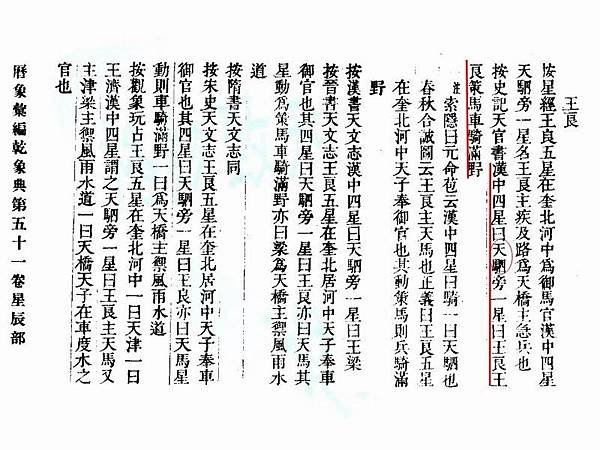 王良
按星經王良五星在奎北河中爲御馬官漢中四星
天駟旁一星名王良主疾及路爲天橋主急兵也
按史記天官書漢中四星曰天駟旁一星曰王良王
良策馬車騎滿野
註 索隱曰元命苞云漢中四星曰騎一曰天駟也
春秋合誠圖云王良主天馬也正義曰王良五星
在奎北河中天子奉御官也其動策馬則兵騎滿
野
按漢書天文志漢中四星曰天駟旁一星曰王梁
按晉書天文志王良五星在奎北居河中天子奉車
御官也其四星曰天駟旁一星曰王良亦曰天馬其
星動爲策馬車騎滿野亦曰梁爲天橋主禦風雨水
道
按隋書天文志同
按宋史天文志王良五星在奎北居河中天子奉車
御官也其四星曰天駟旁一星曰王良亦曰天馬星
動則車騎滿野一曰爲天橋主禦風雨水道
按觀象玩占王良五星在奎北河中一曰天津一曰
王濟漢中四星謂之天駟旁一星曰王良主天馬又
主津梁主禦風雨水道一曰天橋天子在車度水之
官也
曆象彙編乾象典第五十一卷星辰部